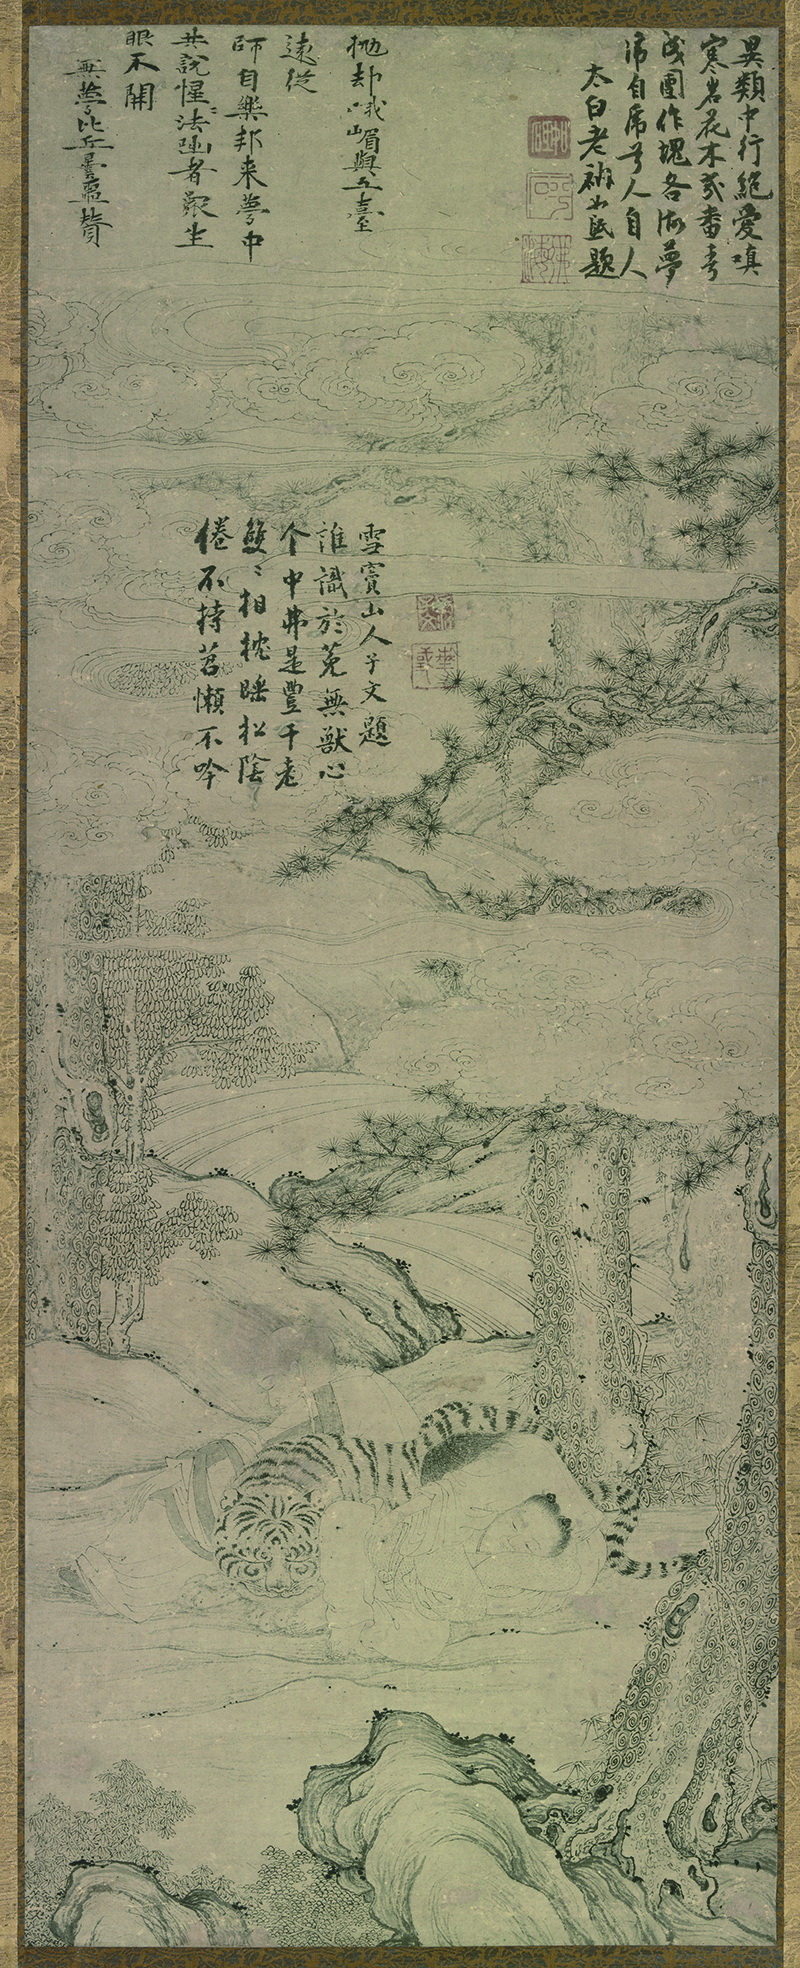 異類中行絕愛嗔
寒岩花木幾番春
成團作塊各做夢
帍自帍兮人自人
太白老衲如砥題
倦不持苕懶不吟
雙〻相枕睡松陰
个中弗是豐干老
誰識於菟無獸心
雪竇山人子文題
拋却峨嵋與五臺
遠從
師自樂邦来夢中
共說惺〻法者衆生
眼不開
無夢比丘曇噩贊